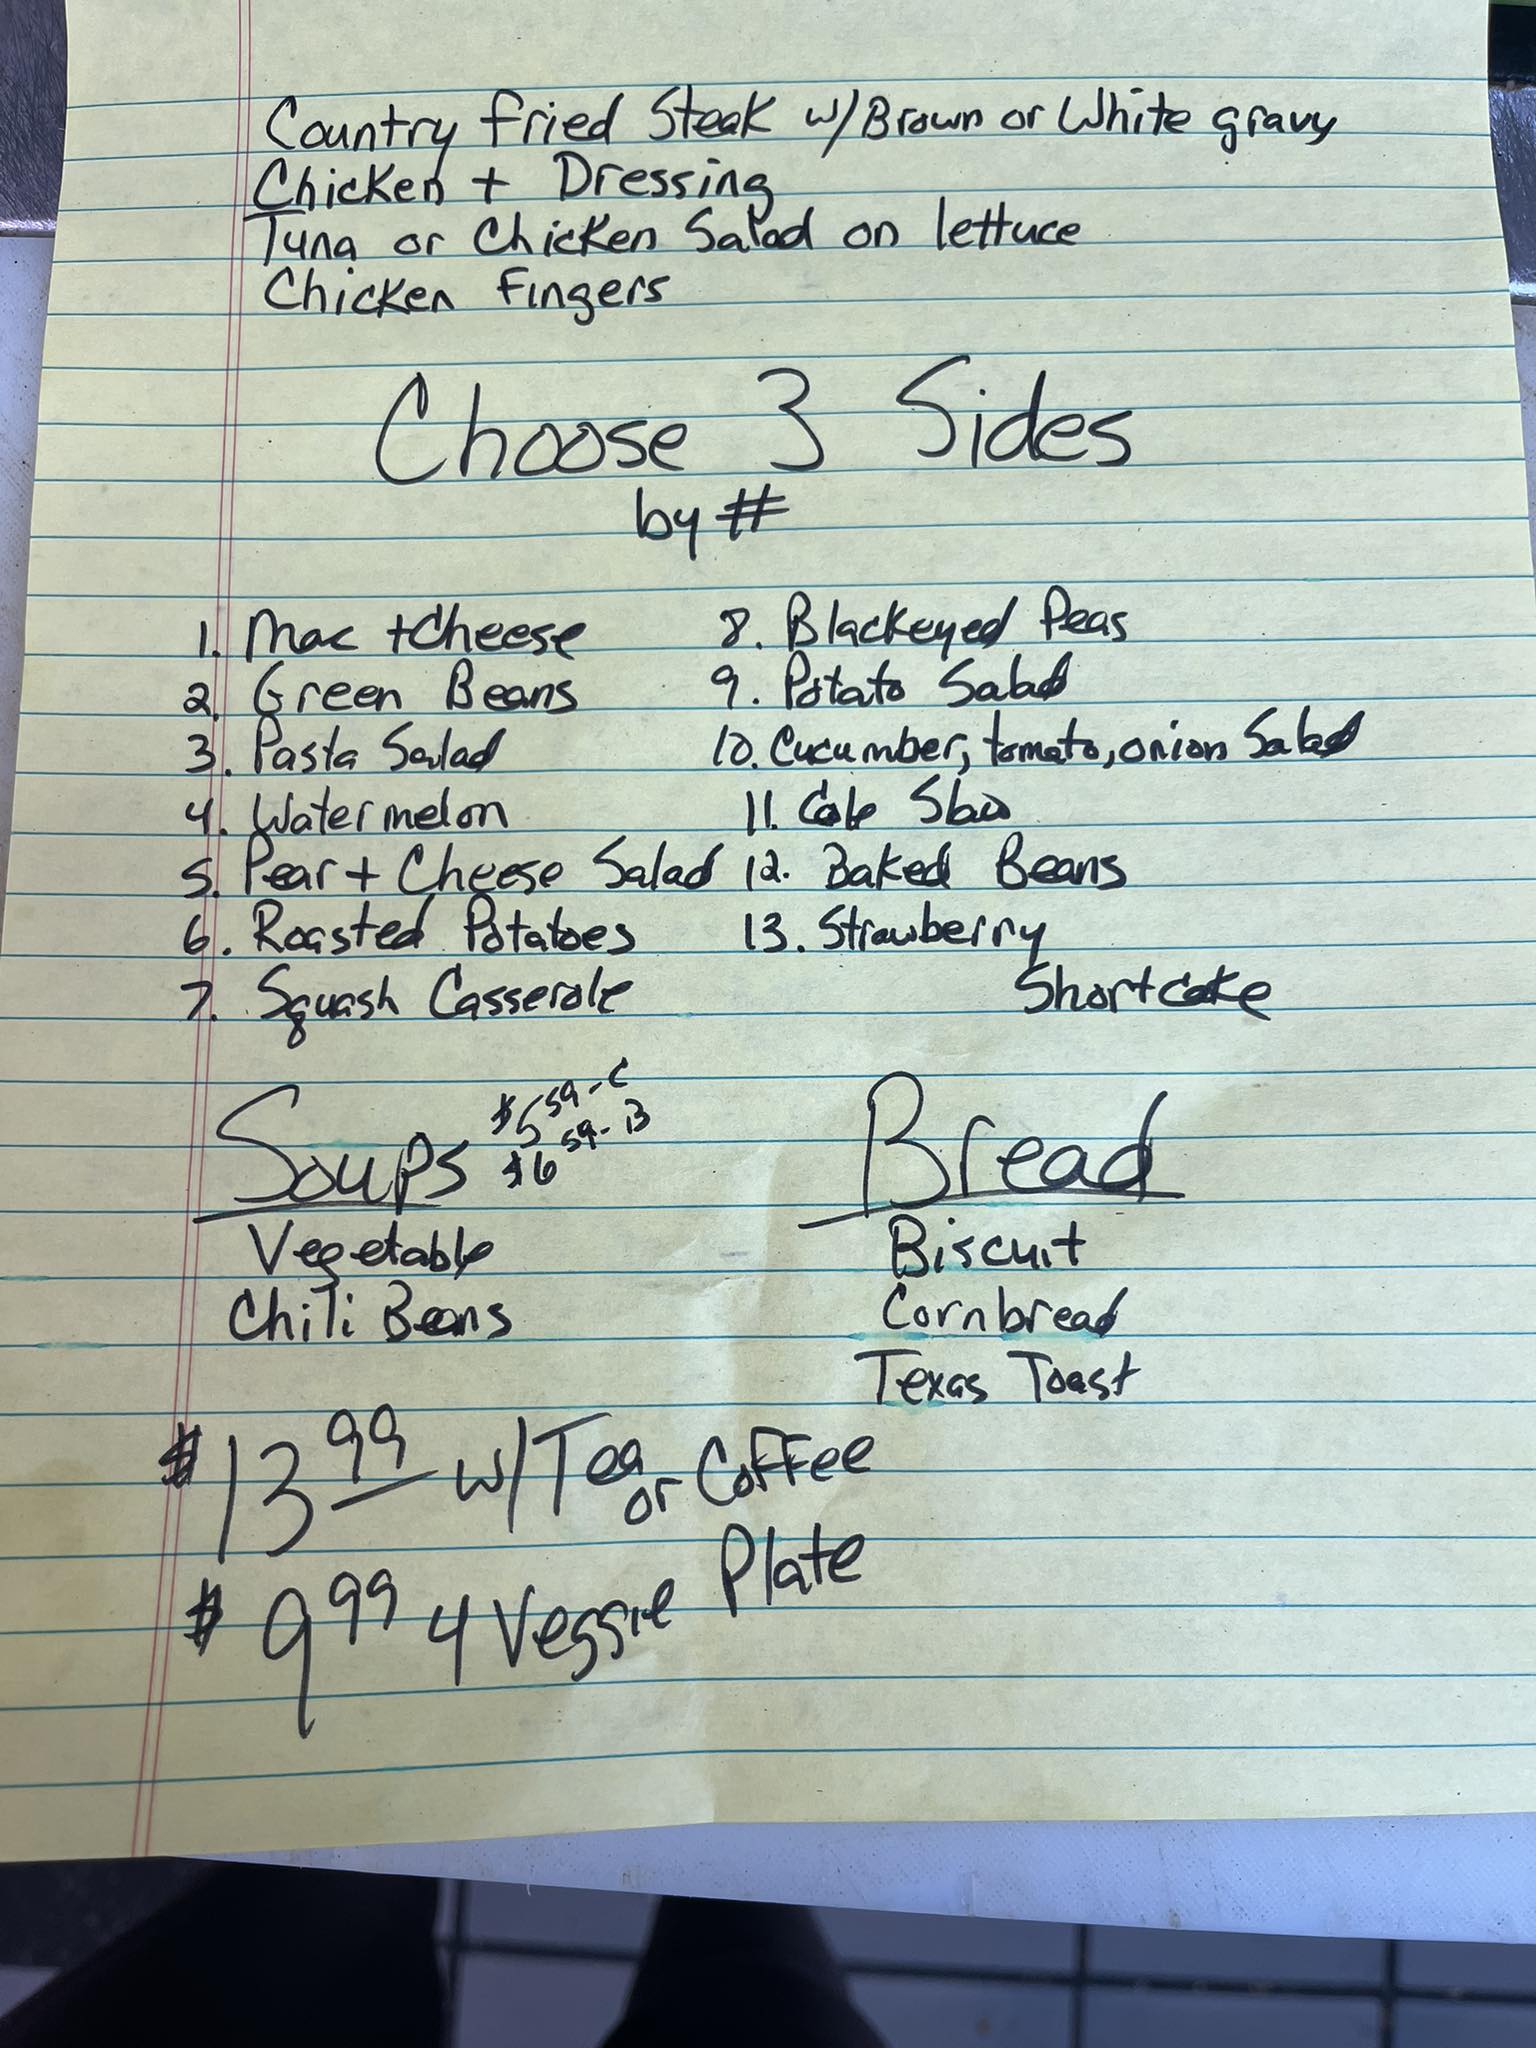 Country fried Steak w/Brown or White gravy
Chicken + Dressing
Tuna or Chicken Salad on lettuce
Chicken Fingers
Choose 3 Sides
by #
1. Mac + Cheese
2. Green Beans
3. Pasta Salad
4. Watermelon
5. Pear + Cheese Salad
6. Roasted Potatoes
7. Squash Casserole
8. Blackeyed Peas
9. Potato Salad
10. Cucumber, tomato, onion Salad
11. Cole Slaw
12. Baked Beans
13. Strawberry
Shortcake
Soups $5 59-C
$6 59-B
Vegetable
Chili Beans
Bread
Biscuit
Cornbread
Texas Toast
$13 99 w/Tea or Coffee
$9 99 4 Veggie Plate